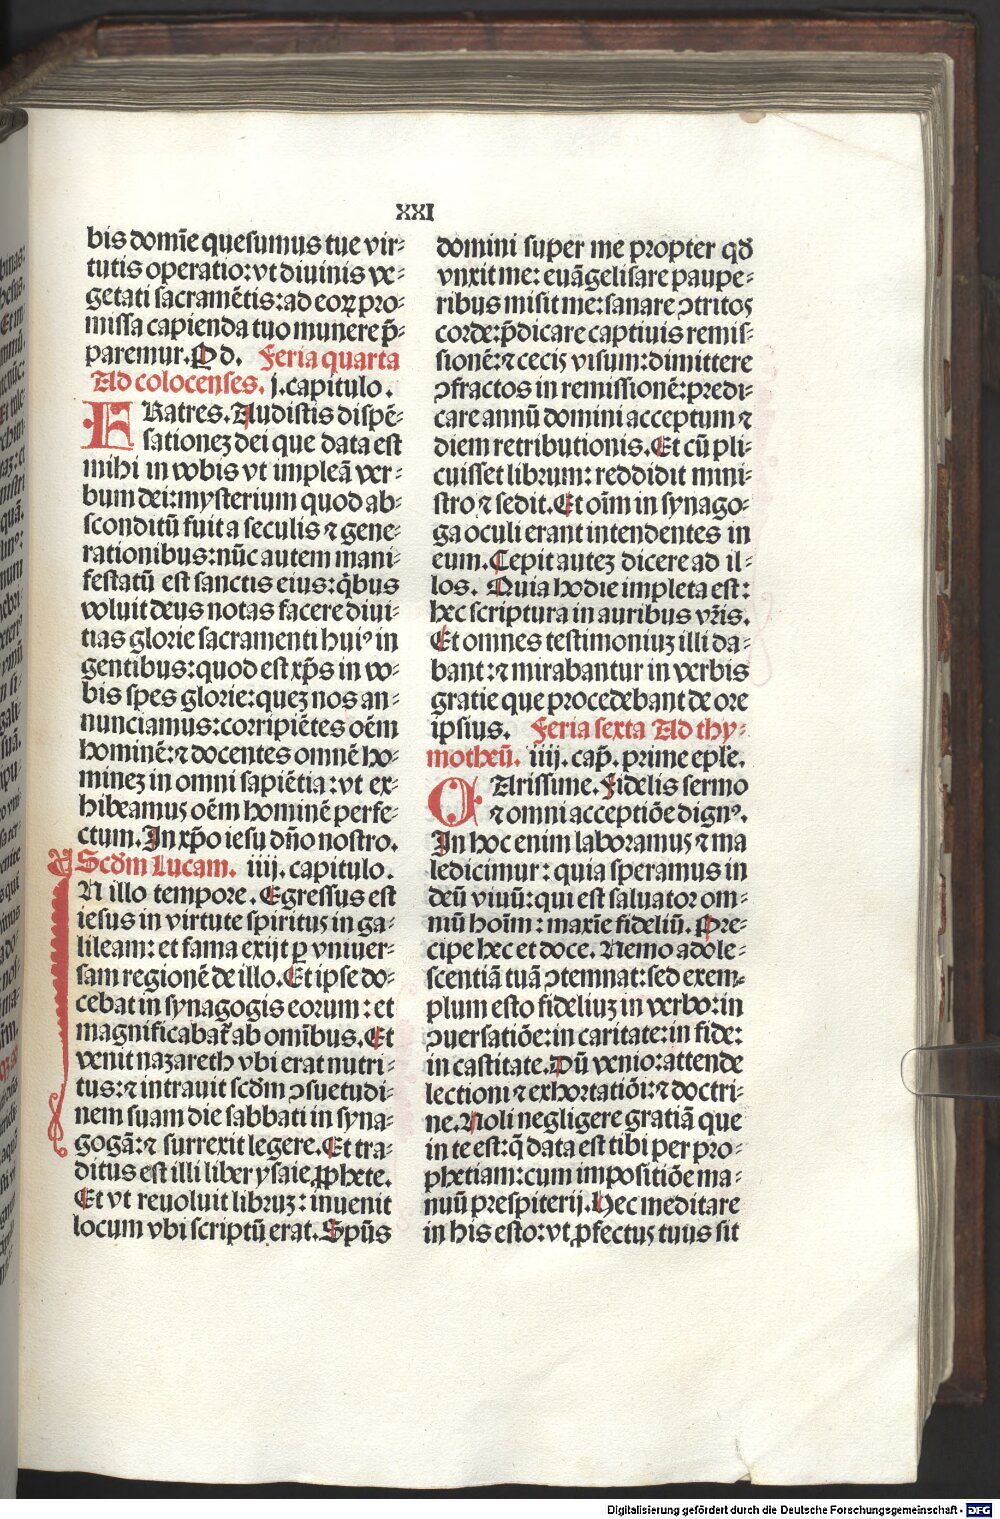 XXI
bis domīe quesumus tue vir-
tutis operatio: vt diuinis ve-
getati sacramētis: ad eoꝝ pro-
missa capienda tuo munere p̄-
paremur. P d. Feria quarta
Ad colocenses. j. capitulo.
FRatres. Audistis dispē-
sationez dei que data est
mihi in vobis vt impleā ver-
bum dei: mysterium quod ab-
sconditū fuit a seculis ⁊ gene-
rationibus: nūc autem mani-
festatū est sanctis eius: q̇bus
voluit deus notas facere diui-
tias glorie sacramenti huiꝰ in
gentibus: quod est xp̄s in vo-
bis spes glorie: quez nos an-
nunciamus: corripiētes oēm
hominē: ⁊ docentes omnē ho-
minez in omni sapiētia: vt ex-
hibeamus oēm hominē perfe-
ctum. In xp̄o iesu dn̄o nostro.
Scd̄m Lucam. iiij. capitulo.
IN illo tempore. Egressus est
iesus in virtute spiritus in ga-
lileam: et fama exijt ꝑ vniuer-
sam regionē de illo. Et ipse do-
cebat in synagogis eorum: et
magnificabat̄ ab omībus. Et
venit nazareth vbi erat nutri-
tus: ⁊ intrauit scd̄m ↄsuetudi-
nem suam die sabbati in syna-
gogā: ⁊ surrexit legere. Et tra-
ditus est illi liber ysaie ꝓphete.
Et vt reuoluit libruz: inuenit
locum vbi scriptū erat. Spūs
domini super me propter qd̄
vnxit me: euāgelisare paupe-
ribus misit me: sanare ↄtritos
corde: p̄dicare captiuis remis-
sionē: ⁊ cecis visum: dimittere
ↄfractos in remissionē: predi-
care annū domini acceptum ⁊
diem retributionis. Et cū pli-
cuisset librum: reddidit mini-
stro ⁊ sedit. Et oīm in synago-
ga oculi erant intendentes in
eum. Cepit autez dicere ad il-
los. Quia hodie impleta est:
hec scriptura in auribus vr̄is.
Et omnes testimoniuz illi da-
bant: ⁊ mirabantur in verbis
gratie que procedebant de ore
ipsius. Feria sexta Ad thy-
motheū. iiij. cap̄. prime epl̄e.
CArissime. Fidelis sermo
⁊ omni acceptiōe dignꝰ.
In hoc enim laboramus ⁊ ma
ledicimur: quia speramus in
deū viuū: qui est saluator om-
niū hoīm: maxīe fideliū. Pre-
cipe hec et doce. Nemo adole-
scentiā tuā ↄtemnat: sed exem-
plum esto fideliuz in verbo: in
ↄuersatiōe: in caritate: in fide:
in castitate. Dū venio: attende
lectioni ⁊ exhortatiōi: ⁊ doctri-
ne. Noli negligere gratiā que
in te est: q̄ data est tibi per pro-
phetiam: cum impositiōe ma-
nuū prespiterij. Hec meditare
in his esto: vt ꝓfectus tuus sit
Digitalisierung gefördert durch die Deutsche Forschungsgemeinschaft - DFG